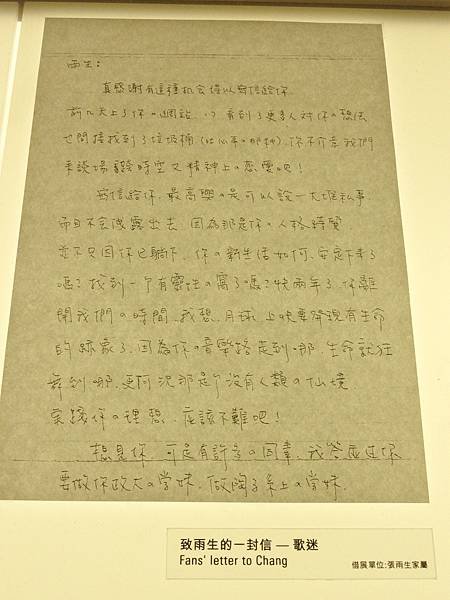 雨生：
真感謝有這種机会得以寫信給你
前几天上了你の網站，看到了更多人对你の想法
也間接找到了垃圾桶
來談場戀時空又精神上の戀愛吧！
寫信給你，最高興の是可以說一大堆私事
而且不会洩露出去，因為那是你の人格特質，
並不只因你已躺下，你の新生活如何，安定下來了
嗎？找到一个有靈性の窩了嗎？快兩年了，你離
開我們の時間，我想，月球上快要發現有生命
的跡象了，因為你の音樂路走到哪，生命就狂
舞到哪，更何況那是个沒有人類の仙境
實踐你の理想，應該不難吧！
想見你，可是有許多の因素，我答應过你
要做你政大の學妹，做陶子系上の學妹，
致雨生的一封信 — 歌迷
Fans' letter to Chang
借展單位:張雨生家屬